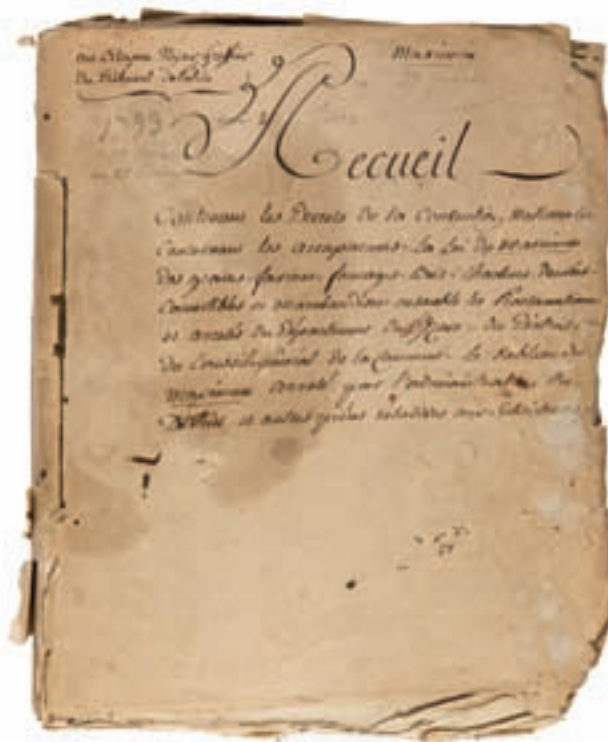 au Citoyen greffier
du Tribunal
Maximum
1793
Recueil
Contenant les Decrets de la Convention Nationale
Concernant les accapareurs. La Loi du maximum
des grains farines fourages
Comestibles et ensemble les Proclamations
et arretés du Département du Du District
du Conseil général de la Commune. Le tableau du
maximum arreté par l'administration du
District et autres pièces relatives aux